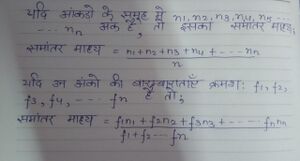 यदि आंकडो के समूह मे n1, n2, n3, n4, n5 ...
... nn अंक है, तो इसका समांतर माध्य;
समांतर माध्य = n1 + n2 + n3 + n4 + ... nn
n
यदि उन अंको की बारम्बारताएँ क्रमशः f1, f2,
f3, f4, .... fn है तो;
समांतर माध्य = f1n1 + f2n2 + f3n3 + ..... fnnn
f1 + f2 .... fn